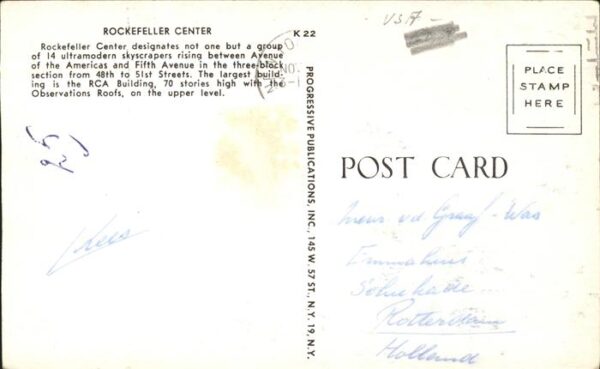 ROCKEFELLER CENTER
Rockefeller Center designates not one but a group
of 14 ultramodern skyscrapers rising between Avenue
of the Americas and Fifth Avenue in the three-block
section from 48th to 51st Streets. The largest build-
ing is the RCA Building, 70 stories high with the
Observations Roofs, on the upper level.
K 22
PROGRESSIVE PUBLICATIONS, INC., 145 W. 57 ST., N.Y. 19, N.Y.
USA
PLACE
STAMP
HERE
POST CARD
Kees
Mevr. vd Graaf - Was
Emmahuis
Rotterdam
Holland